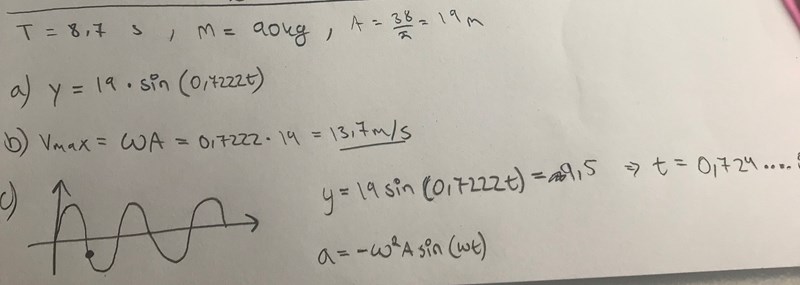 T = 8,7 s , M = 90kg , A = 38/2 = 19m
a) y = 19 · sin (0,7222t)
b) Vmax = ωA = 0,7222 · 19 = 13,7m/s
c)
y = 19 sin (0,7222t) = 9,5 ⇒ t = 0,724....
a = -ω²A sin (ωt)